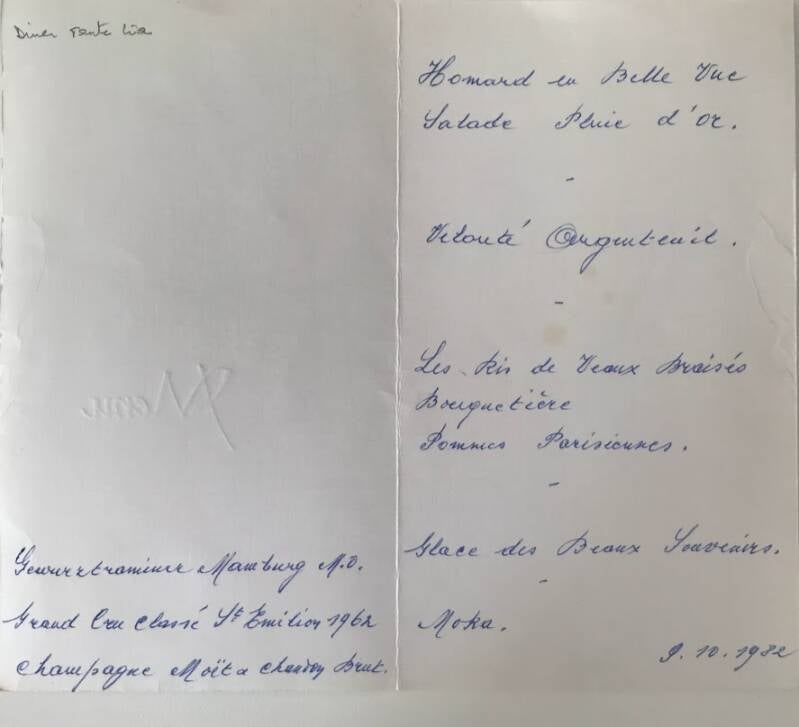 Diner tante Lia
Menu
Gewurztraminer Mamburg M.O.
Grand Cru Classé St Emilion 1962
Champagne Moët & Chandon Brut.
Homard en Belle Vue
Salade Pluie d'or.
-
Velouté Argenteuil.
-
Les Ris de Veaux Braisés
Bouquetière
Pommes Parisiennes.
-
Glace des Beaux Souvenirs.
-
Moka.
9.10.1982